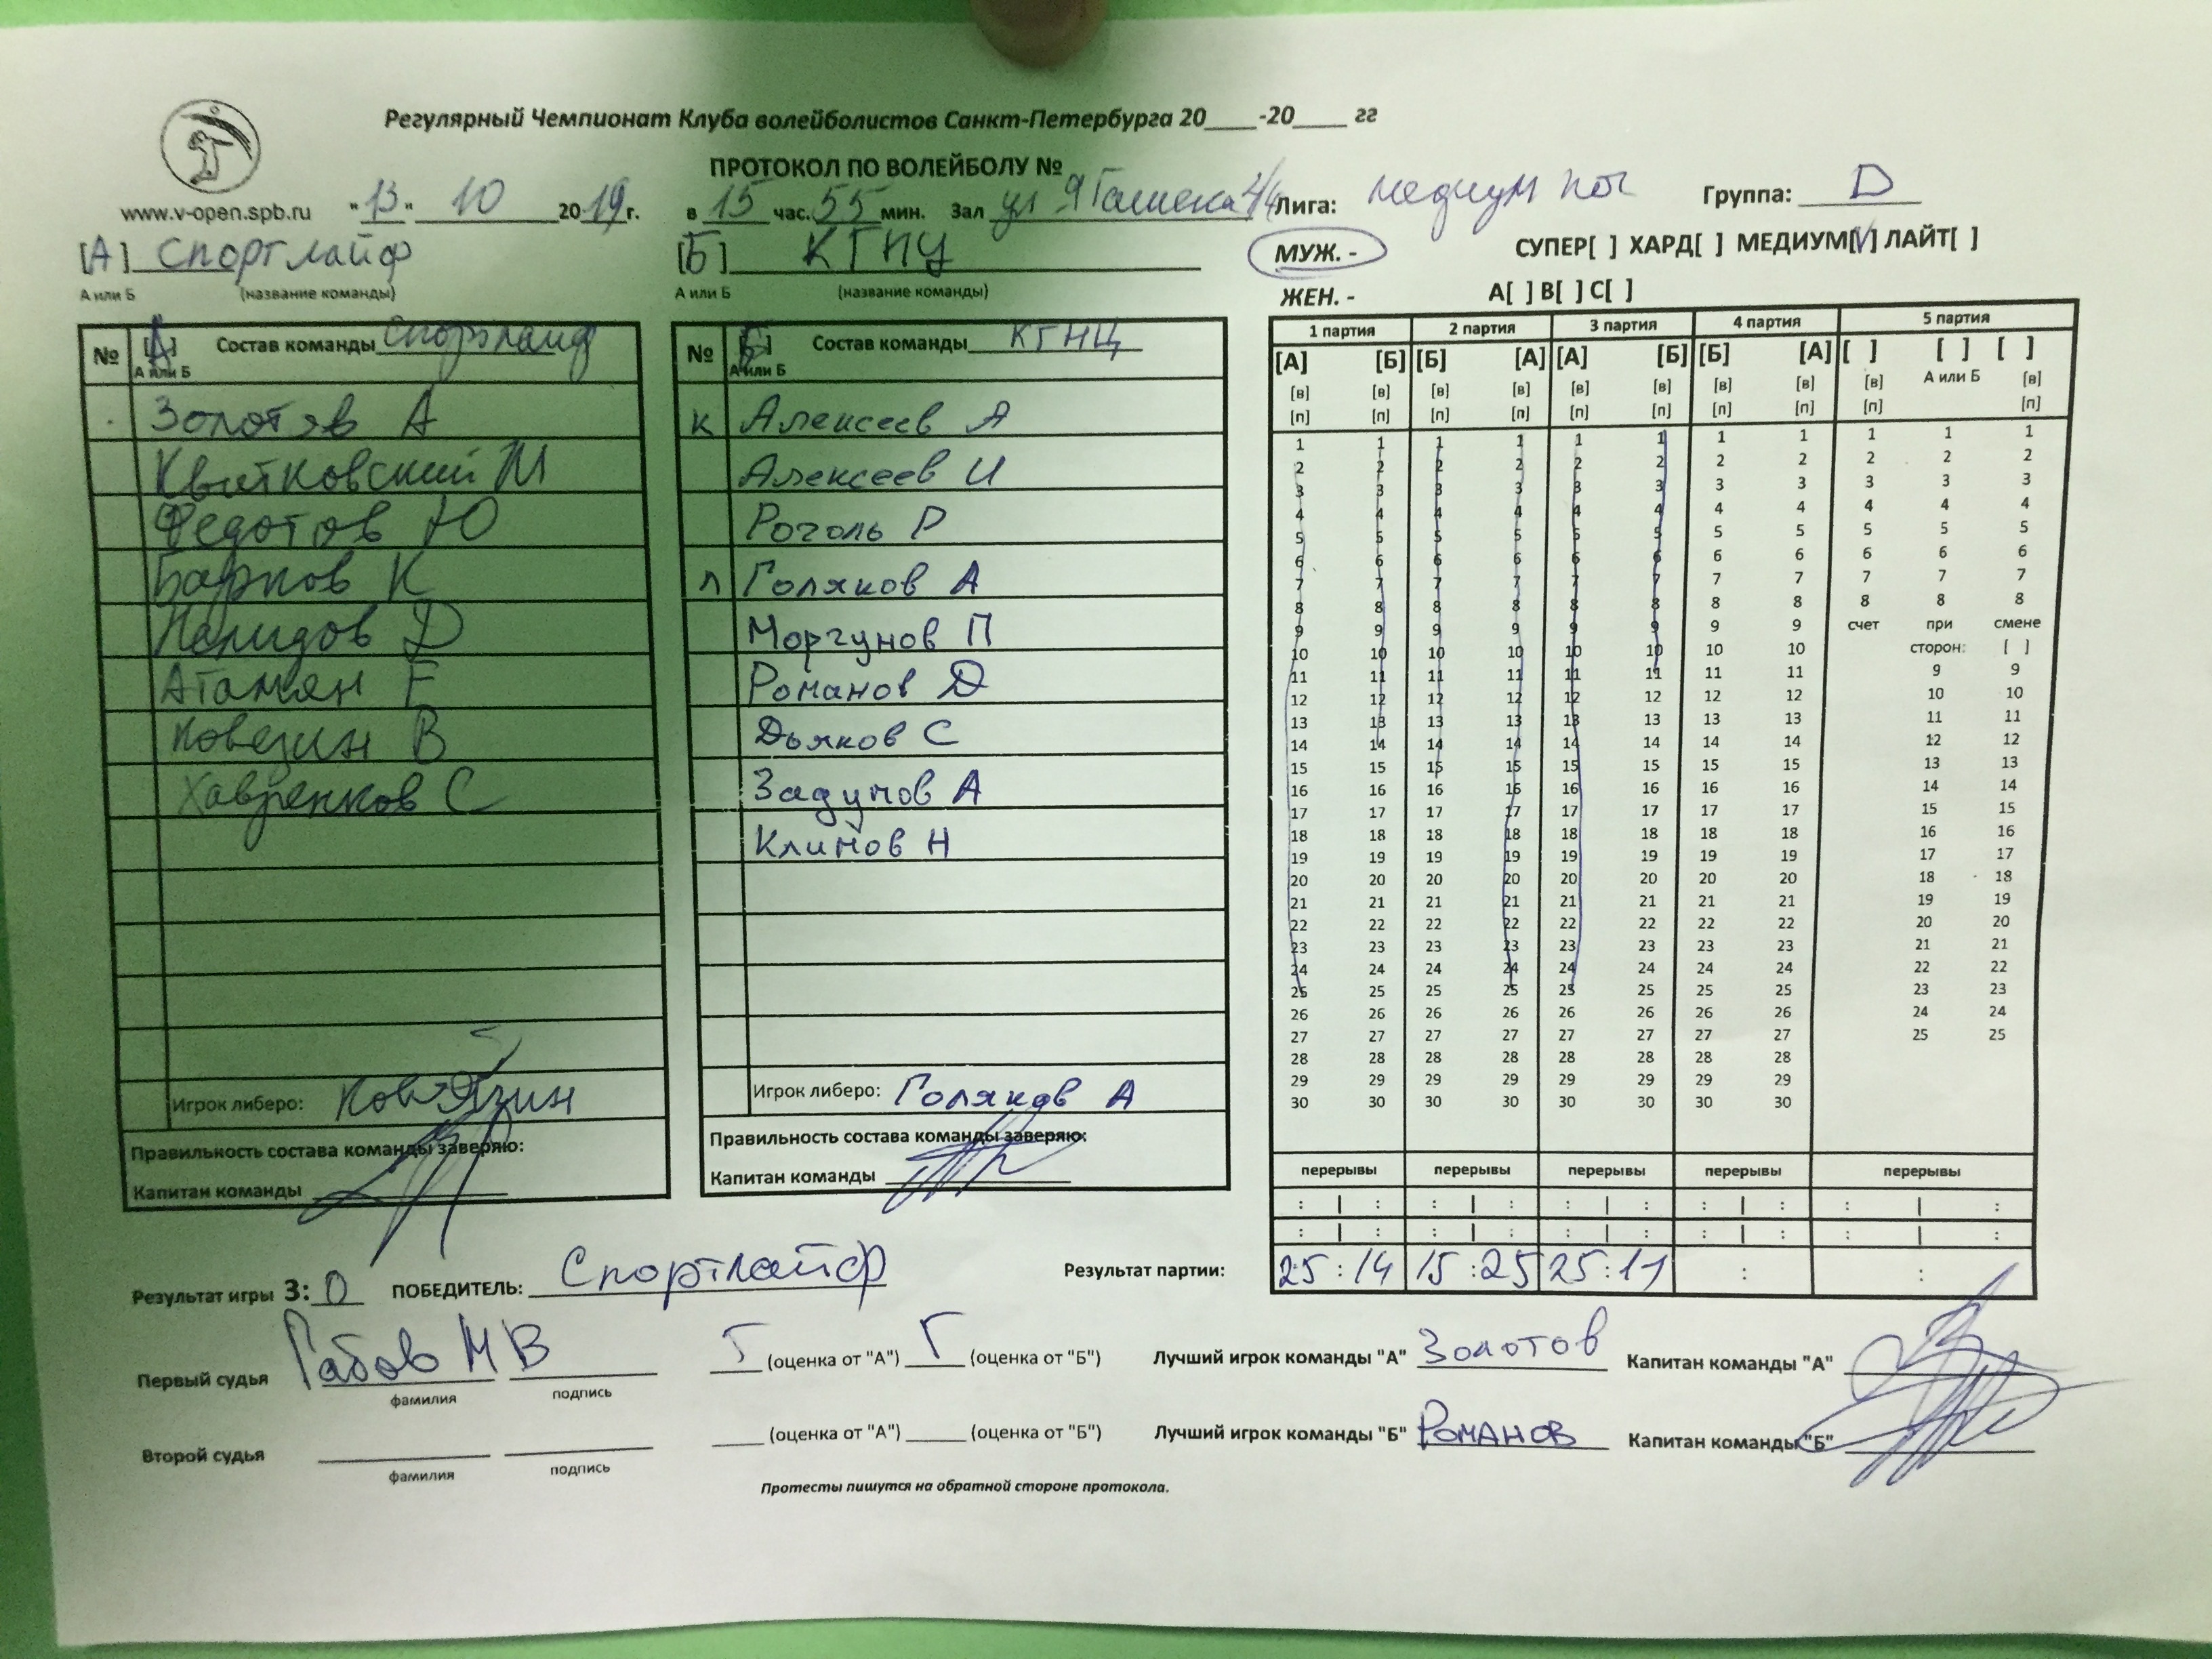 Регулярный Чемпионат Клуба волейболистов Санкт-Петербурга 20____-20____ гг
ПРОТОКОЛ ПО ВОЛЕЙБОЛУ №
www.v-open.spb.ru "13" 10 2019г. в 15 час. 55 мин. Зал ул Я Гашека 4/4 Лига: медиум Группа: D
[А] Спортлайф [Б] КГНЦ МУЖ. - СУПЕР[ ] ХАРД[ ] МЕДИУМ[V] ЛАЙТ[ ]
А или Б (название команды) А или Б (название команды) ЖЕН. - А[ ] В[ ] С[ ]
№ [А] Состав команды Спортлайф
А или Б
Золотов А
Квятковский М
Федотов Ю
Барков К
Атамян Е
Ковезин В
Хавренков С
Игрок либеро: Ковязин
Правильность состава команды заверяю:
Капитан команды
№ [Б] Состав команды КГНЦ
А или Б
к Алексеев А
Алексеев И
Роголь Р
л Голяков А
Моргунов П
Романов Д
Дьяков С
Задумов А
Климов Н
Игрок либеро: Голяков А
Правильность состава команды заверяю:
Капитан команды
1 партия 2 партия 3 партия 4 партия 5 партия
[А] [Б] [Б] [А] [А] [Б] [Б] [А] [ ] [ ] [ ]
[в] [в] [в] [в] [в] [в] [в] [в] [в] А или Б [в]
[п] [п] [п] [п] [п] [п] [п] [п] [п] [п]
1 1 1 1 1 1 1 1 1 1 1
2 2 2 2 2 2 2 2 2 2 2
3 3 3 3 3 3 3 3 3 3 3
4 4 4 4 4 4 4 4 4 4 4
5 5 5 5 5 5 5 5 5 5 5
6 6 6 6 6 6 6 6 6 6 6
7 7 7 7 7 7 7 7 7 7 7
8 8 8 8 8 8 8 8 8 8 8
9 9 9 9 9 9 9 9 счет при смене
10 10 10 10 10 10 10 10 сторон: [ ]
11 11 11 11 11 11 11 11 9 9
12 12 12 12 12 12 12 12 10 10
13 13 13 13 13 13 13 13 11 11
14 14 14 14 14 14 14 14 12 12
15 15 15 15 15 15 15 15 13 13
16 16 16 16 16 16 16 16 14 14
17 17 17 17 17 17 17 17 15 15
18 18 18 18 18 18 18 18 16 16
19 19 19 19 19 19 19 19 17 17
20 20 20 20 20 20 20 20 18 18
21 21 21 21 21 21 21 21 19 19
22 22 22 22 22 22 22 22 20 20
23 23 23 23 23 23 23 23 21 21
24 24 24 24 24 24 24 24 22 22
25 25 25 25 25 25 25 25 23 23
26 26 26 26 26 26 26 26 24 24
27 27 27 27 27 27 27 27 25 25
28 28 28 28 28 28 28 28
29 29 29 29 29 29 29 29
30 30 30 30 30 30 30 30
перерывы перерывы перерывы перерывы перерывы
: | : : | : : | : : | : : | :
: | : : | : : | : : | : : | :
Результат игры 3: 0 ПОБЕДИТЕЛЬ: Спортлайф Результат партии: 25:14 15:25 25:11 : :
Первый судья Габов М В Г (оценка от "А") Г (оценка от "Б") Лучший игрок команды "А" Золотов Капитан команды "А"
фамилия подпись
Второй судья ____ (оценка от "А") ____ (оценка от "Б") Лучший игрок команды "Б" Романов Капитан команды "Б"
фамилия подпись
Протесты пишутся на обратной стороне протокола.